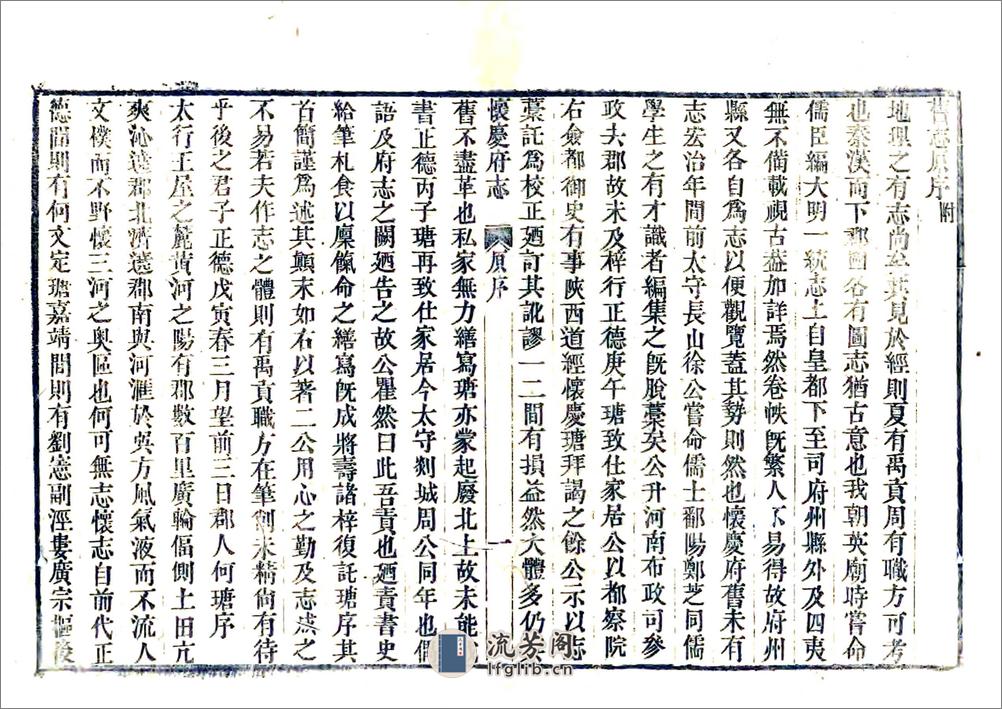 舊志原序附
地理之有志尚矣其見於經則夏有禹貢周有職方可考
也秦漢而下郡國各有圖志猶古意也我朝英廟時嘗命
儒臣編大明一統志上自皇都下至司府州縣外及四夷
無不備載視古益加詳焉然卷帙旣繁人不易得故府州
縣又各自爲志以便觀覽蓋其勢則然也懷慶府舊未有
志宏治年間前太守長山徐公嘗命儒士鄱陽鄭芝同儒
學生之有才識者編集之旣脫藁矣公升河南布政司參
政去郡故未及梓行正德庚午瑭致仕家居公以都察院
右僉都御史有事陝西道經懷慶瑭拜謁之餘公示以志
藁託爲校正廼訂其訛謬一二間有損益然大體多仍其
懷慶府志 原序 一
舊不盡革也私家無力繕寫瑭亦蒙起廢北上故未能
書正德丙子瑭再致仕家居今太守剡城周公同年也偶
語及府志之闕廼告之故公瞿然曰此吾責也廼責書史
給筆札食以廩餼命之繕寫旣成將壽諸梓復託瑭序其
首簡謹爲述其顛末如右以著二公用心之勤及志成之
不易若夫作志之體則有禹貢職方在筆削未精尙有待
乎後之君子正德戊寅春三月望前三日郡人何瑭序
太行王屋之麓黃河之陽有郡數百里廣輪偪側土田亢
爽沁遶郡北濟遶郡南與河滙於吳方風氣液而不流人
文樸而不野懷三河之奧區也何可無志懷志自前代正
德間則有何文定瑭嘉靖間則有劉憲副涇婁廣宗樞後
流芳阁
lfglib.cn